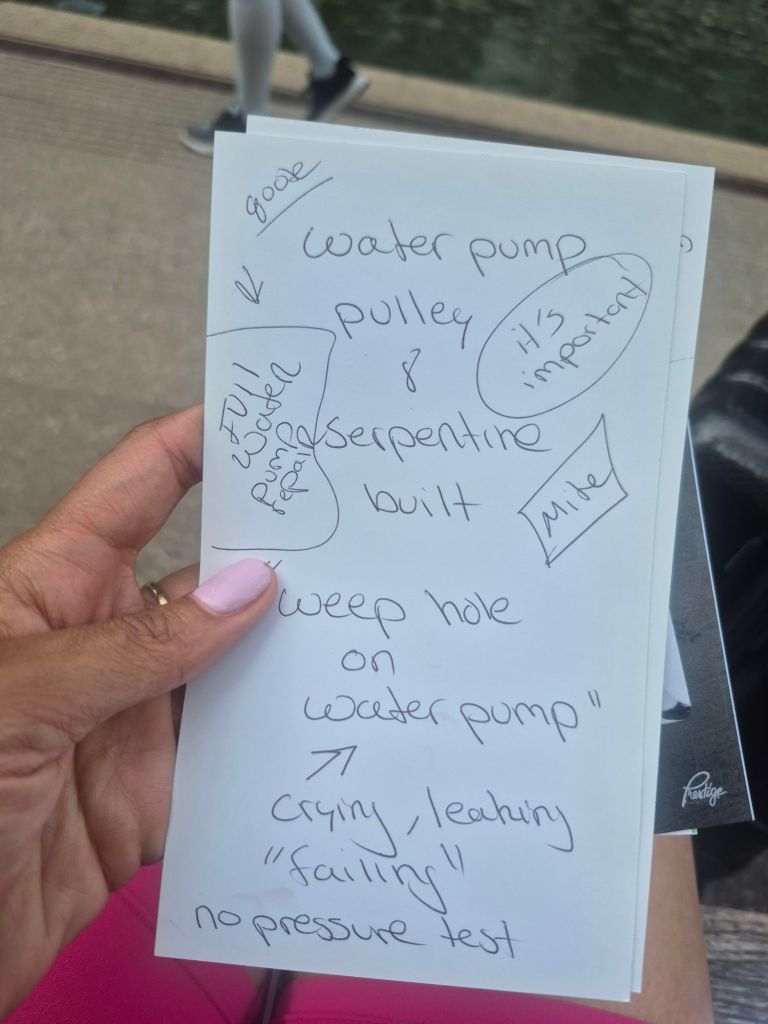 quote
water pump
pulley
it's
important
&
Full
water
pump
repair
serpentine
built
"weep hole
on
water pump"
crying, leaking
"failing"
no pressure test
Prestige